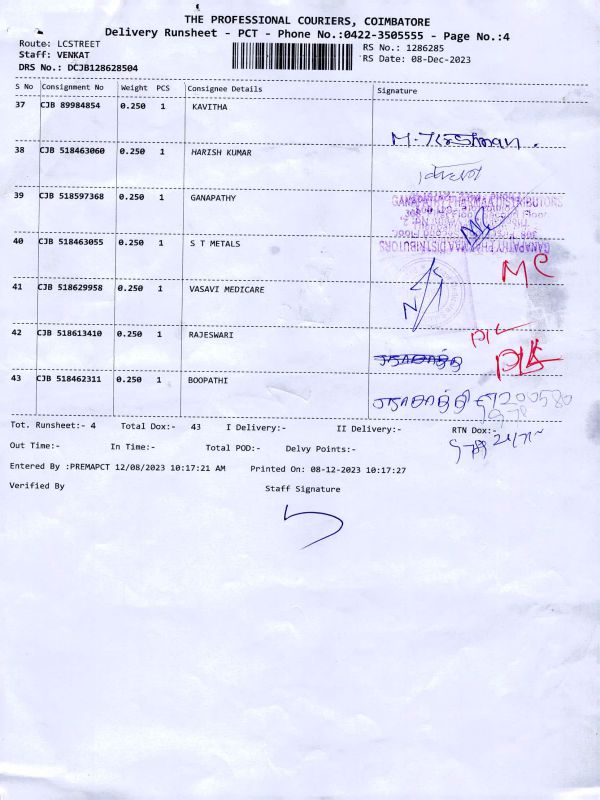 THE PROFESSIONAL COURIERS, COIMBATORE
Delivery Runsheet - PCT - Phone No.:0422-3505555 - Page No.:4
Route: LCSTREET RS No.: 1286285
Staff: VENKAT RS Date: 08-Dec-2023
DRS No.: DCJB128628504
S No Consignment No Weight PCS Consignee Details Signature
37 CJB 89984854 0.250 1 KAVITHA
38 CJB 518463060 0.250 1 HARISH KUMAR
39 CJB 518597368 0.250 1 GANAPATHY
GANAPATHY PHARMAA DISTRIBUTORS
40 CJB 518463055 0.250 1 S T METALS
GANAPATHY PHARMAA DISTRIBUTORS
MC
41 CJB 518629958 0.250 1 VASAVI MEDICARE
42 CJB 518613410 0.250 1 RAJESWARI
43 CJB 518462311 0.250 1 BOOPATHI
Tot. Runsheet:- 4 Total Dox:- 43 I Delivery:- II Delivery:- RTN Dox:-
Out Time:- In Time:- Total POD:- Delvy Points:-
Entered By :PREMAPCT 12/08/2023 10:17:21 AM Printed On: 08-12-2023 10:17:27
Verified By Staff Signature